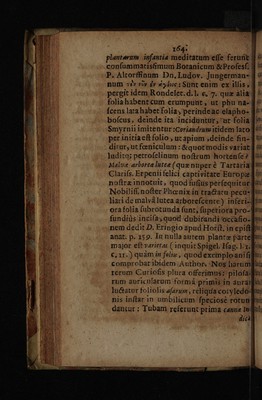 164.
plantarum infantia meditatum esse ferunt
consummatissimum Botanicum & Profess.
P. Altorffinum Dn. Ludov. Jungerman-
num Sunt enim ex illis,
pergit idem Rondelet. d. l. c. 7. quæ alia
folia habent cum erumpunt, ut phu na-
scens lata habet folia, perinde ac elapho-
boscus, deinde ita inciduntur, ut folia
Smyrnii imitentur: Coriandrum itidem lato
per initia est folio, ut apium, deinde fin-
ditur, ut fœniculum: & quot modis variat
luditq; petroselinum nostrum hortense?
Malva arborea lutea (quæ nuper è Tartaria
Clariss. Erpenii felici captivitate Europæ
nostræ innotuit, quod fusius persequitur
Nobiliss. noster Phœnix in tractatu pecu-
liari de malva lutea arborescente) inferi-
ora folia subrotunda sunt, superiora pro-
fundiùs incisa, quod dubitandi occasio-
nem dedit D. Eringio apud Horst. in epist.
anat. p. 259. In nulla autem plantæ parte
major est varietas (inquit Spigel. Isag. l. 1.
c. 21.) quàm in foliis, quod exemplo anisi
comprobat ibidem Author. Nos harum
rerum Curiosis plura offerimus: pilosa-
rum auricularum forma primis in auras
luctatur foliolis asarum, reliqua cotyledo-
nis instar in umbilicum speciosè rotun-
dantur: Tubam referunt prima cannæ In-
dicæ